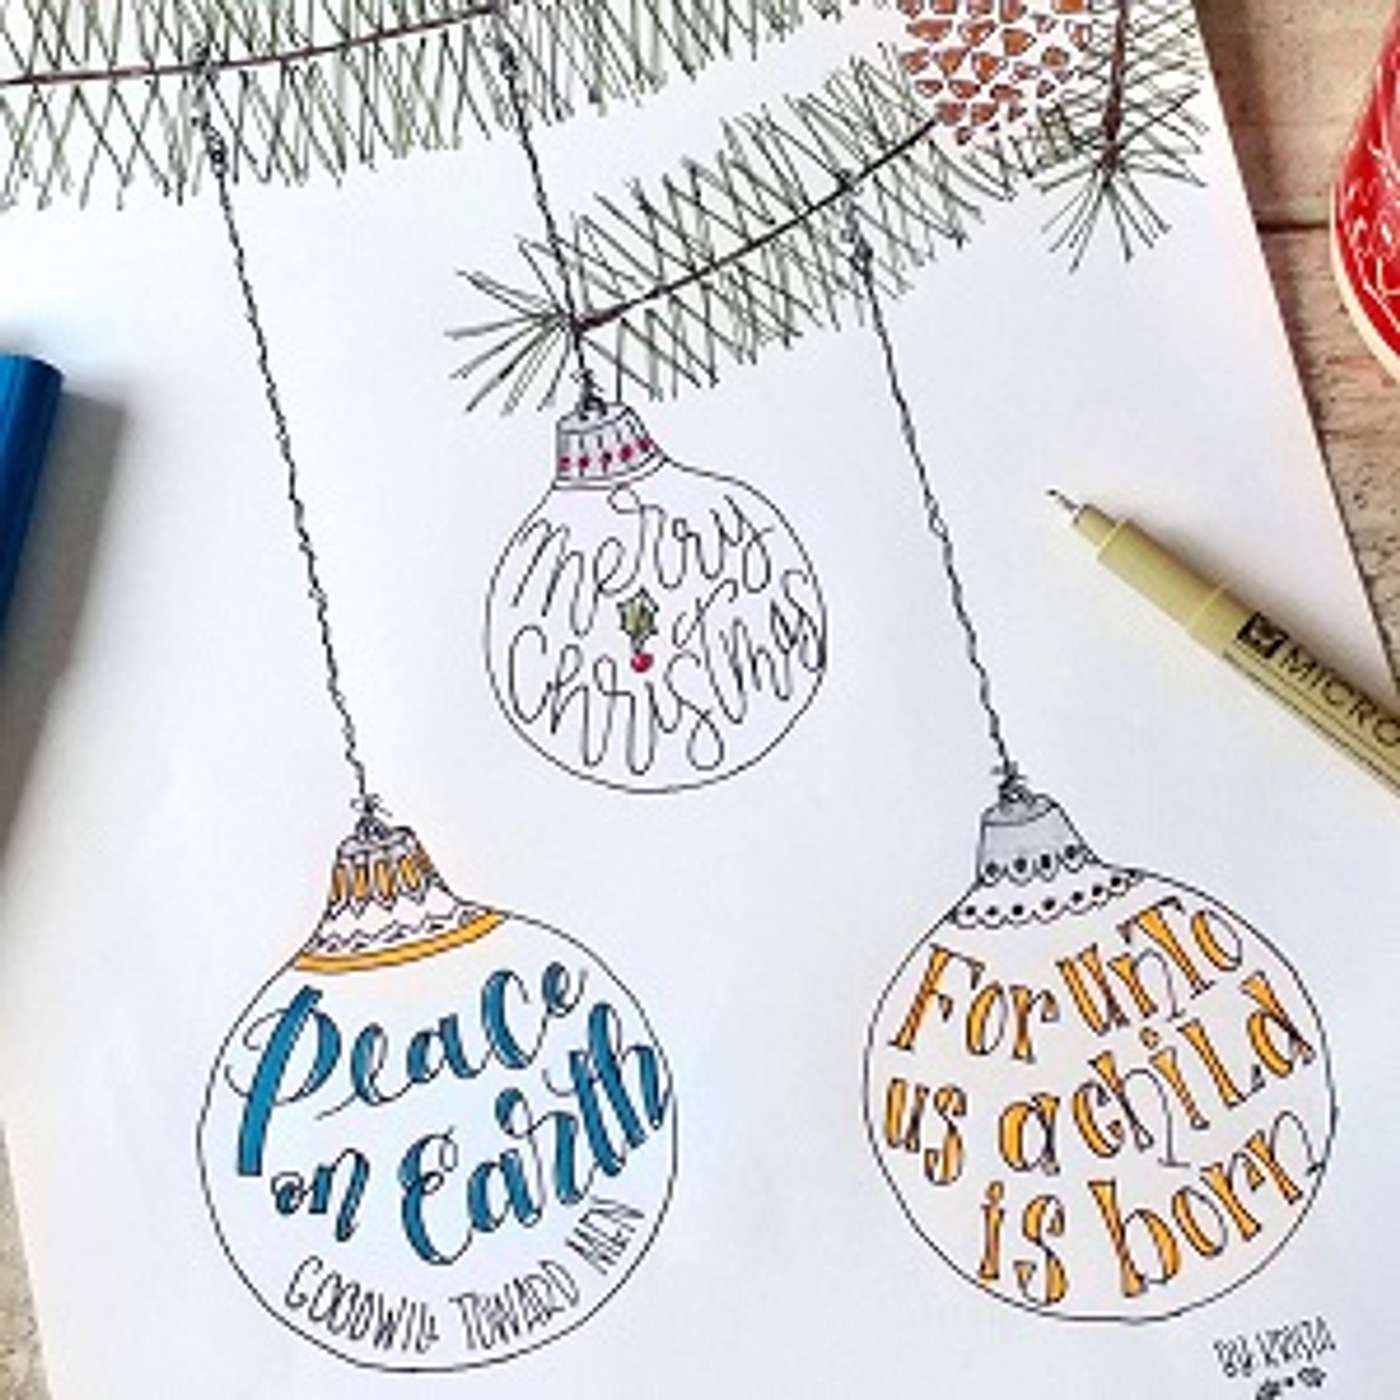 merry
Christmas
MICRO
Peace
on Earth
GOODWILL TOWARD MEN
For unto
us a child
is born
BY KRISTA